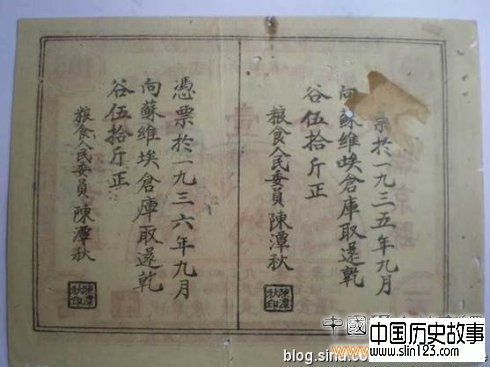 票於一九三五年九月
向蘇維埃倉庫取還乾
谷伍拾斤正
粮食人民委員 陳潭秋
陳潭秋印
憑票於一九三六年九月
向蘇維埃倉庫取還乾
谷伍拾斤正
粮食人民委員 陳潭秋
陳潭秋印
中國
中国历史故事
www.slin123.com
blog.sina.com